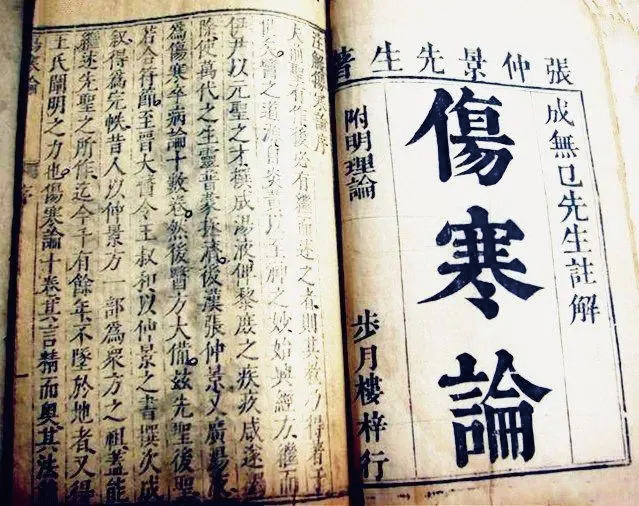 張仲景先生著
成無已先生註解
傷寒論
附明理論
步月樓梓行
注解傷寒論序
夫前聖有作後必有繼而述之者則其教乃得著于
世矣醫之道源自炎黃以至神之妙始興經方繼而
伊尹以元聖之才撰成湯液俾黎庶之疾疢咸遂
除使萬代之生靈普蒙拯濟後漢張仲景又廣湯液
為傷寒卒病論十數卷然後醫方大備茲先聖後聖
若合符節至晉太醫令王叔和以仲景之書撰次成
叙得為完帙昔人以仲景方一部為眾方之祖蓋能
繼述先聖之所作迄今千有餘年不墜於地者又得
王氏闡明之力也傷寒論十卷其言精而奧其法
傷寒論 序